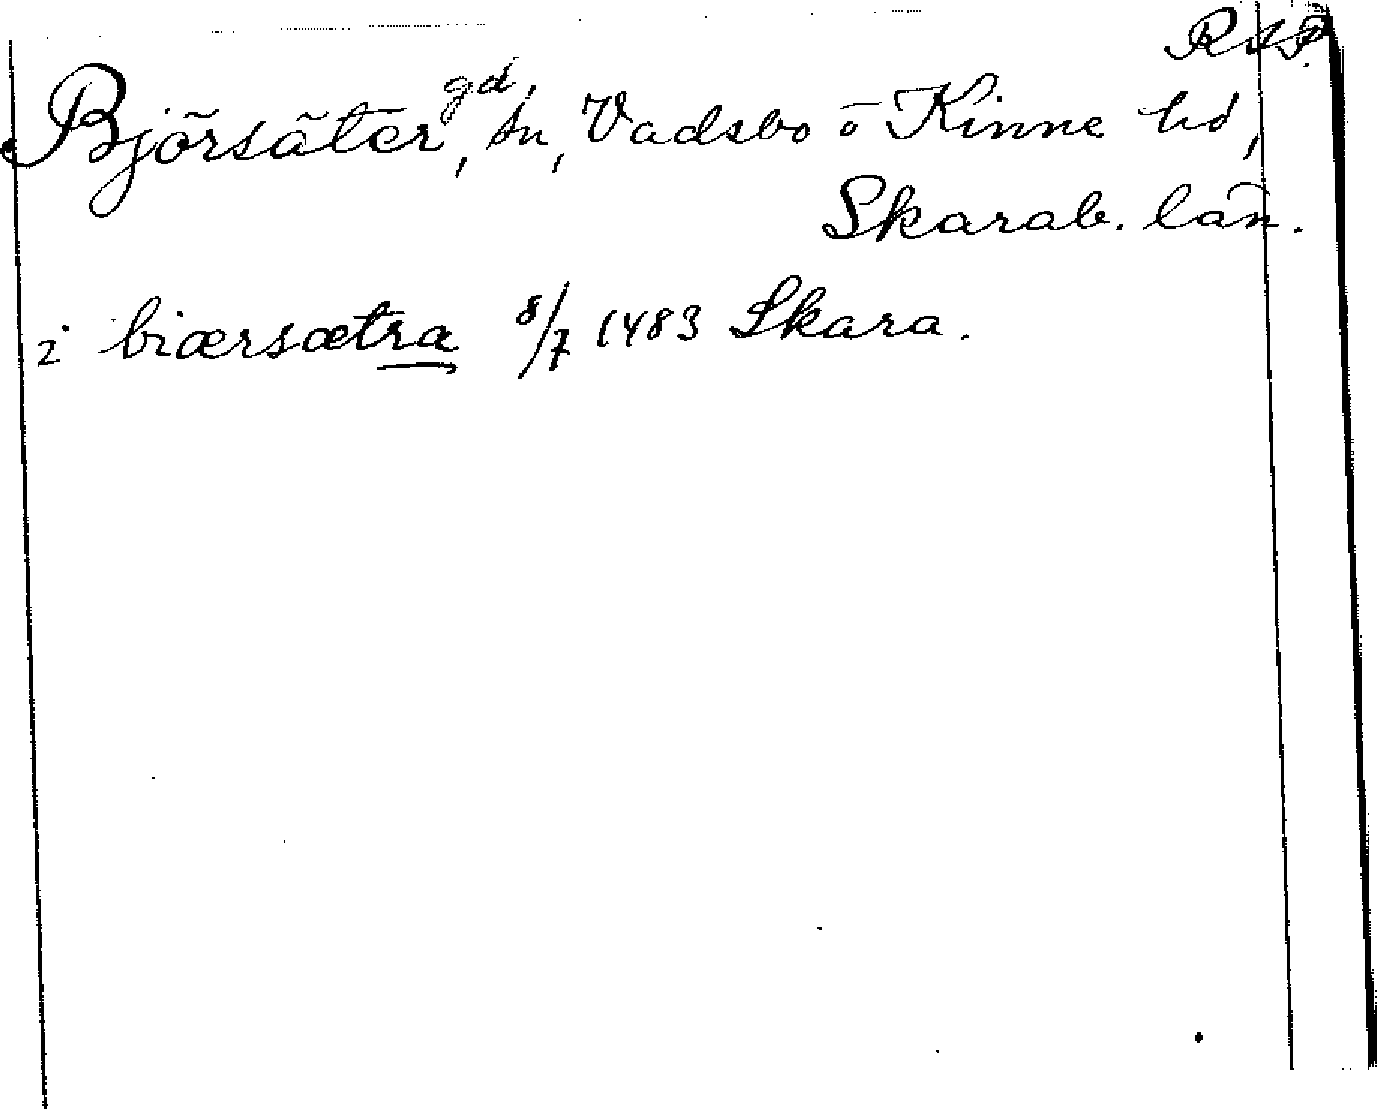 RAP.
Björsäter, gd, sn, Vadsbo o Kinne hd,
Skarab. län.
i biærsætra 8/7 1483 Skara.